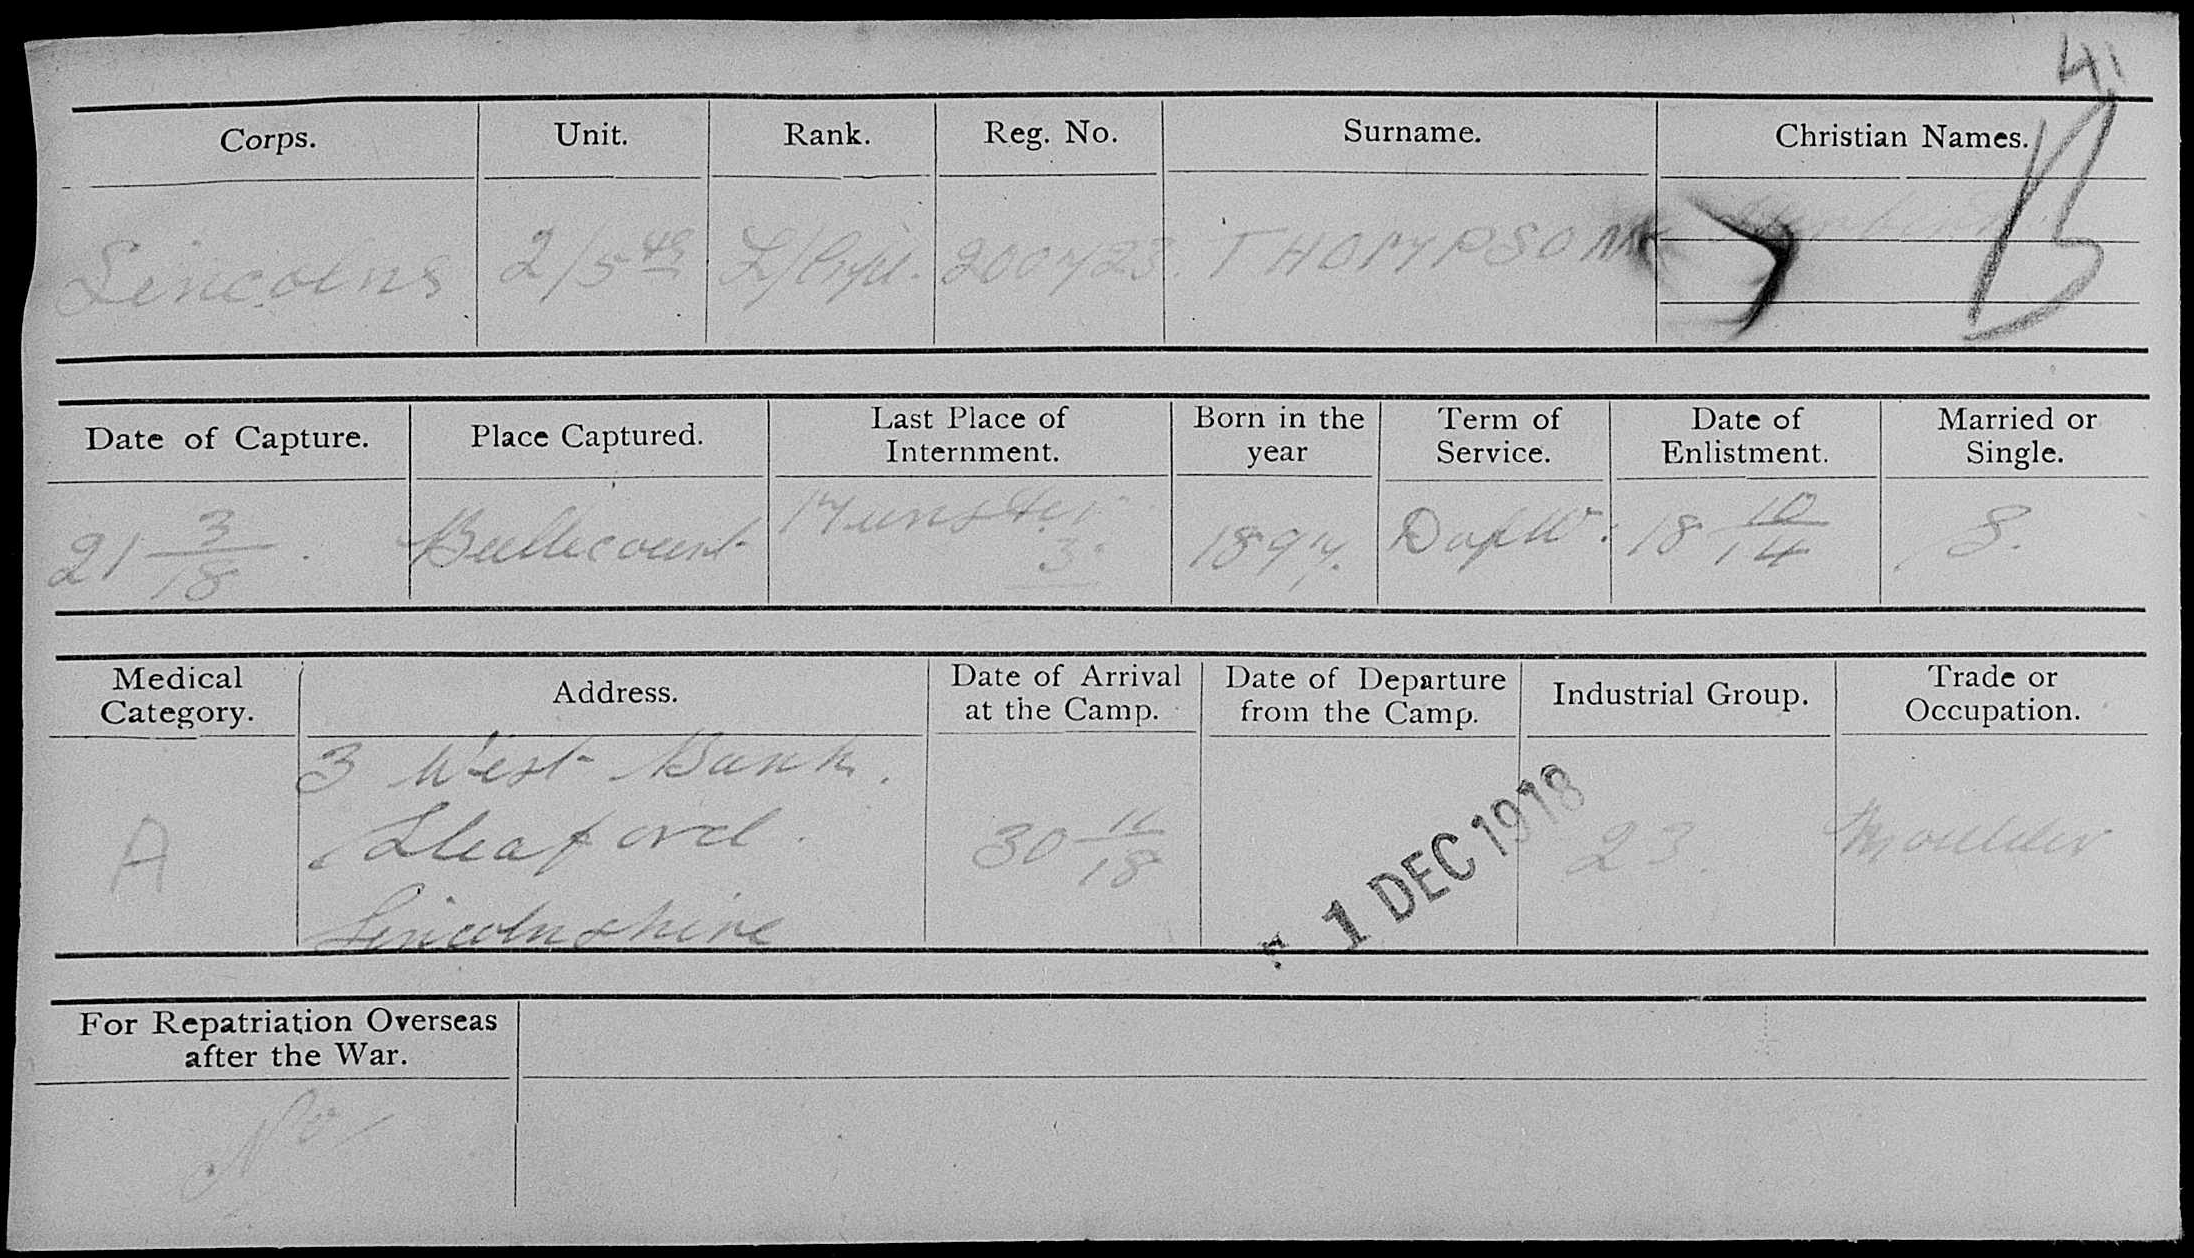 4
B
Corps. Unit. Rank. Reg. No. Surname. Christian Names.
Lincolns 2/5th L/Cpl. 200723. THOMPSON Herbert
Date of Capture. Place Captured. Last Place of Internment. Born in the year Term of Service. Date of Enlistment. Married or Single.
21 3/18. Bullecourt Munster 3. 1897. DofW. 18 10/14 S.
Medical Category. Address. Date of Arrival at the Camp. Date of Departure from the Camp. Industrial Group. Trade or Occupation.
3 West Bank.
A Sleaford. 30 11/18 1 DEC 1918 23. Moulder
Lincolnshire
For Repatriation Overseas
after the War.
No